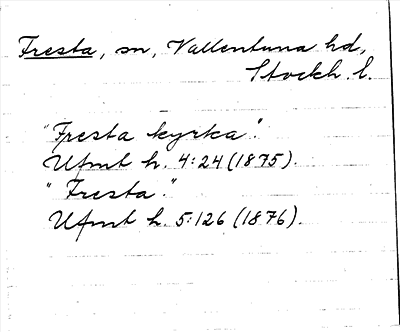 Fresta, sn, Vallentuna hd,
Stockh. l.
"Fresta kyrka".
Ufmt h. 4:24 (1875).
"Fresta".
Ufmt h. 5:126 (1876).